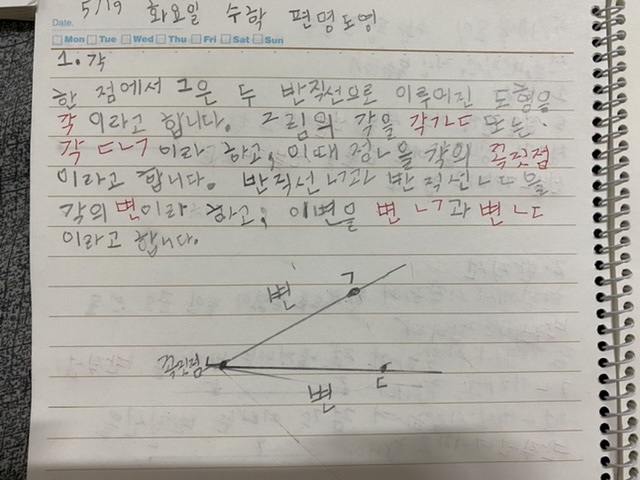 5/19 화요일 수학 편명도영
Date.
Mon Tue Wed Thu Fri Sat Sun
1. 각
한 점에서 그은 두 반직선으로 이루어진 도형을
각 이라고 합니다. 그림의 각을 각ㄱㄴㄷ 또는
각 ㄷㄴㄱ 이라 하고, 이때 점ㄴ을 각의 꼭짓접
이라고 합니다. 반직선 ㄴㄱ과 반직선 ㄴㄷ을
각의 변이라 하고, 이변을 변 ㄴㄱ과 변 ㄴㄷ
이라고 합니다.
변 ㄱ
꼭짓점 ㄴ
ㄷ
변